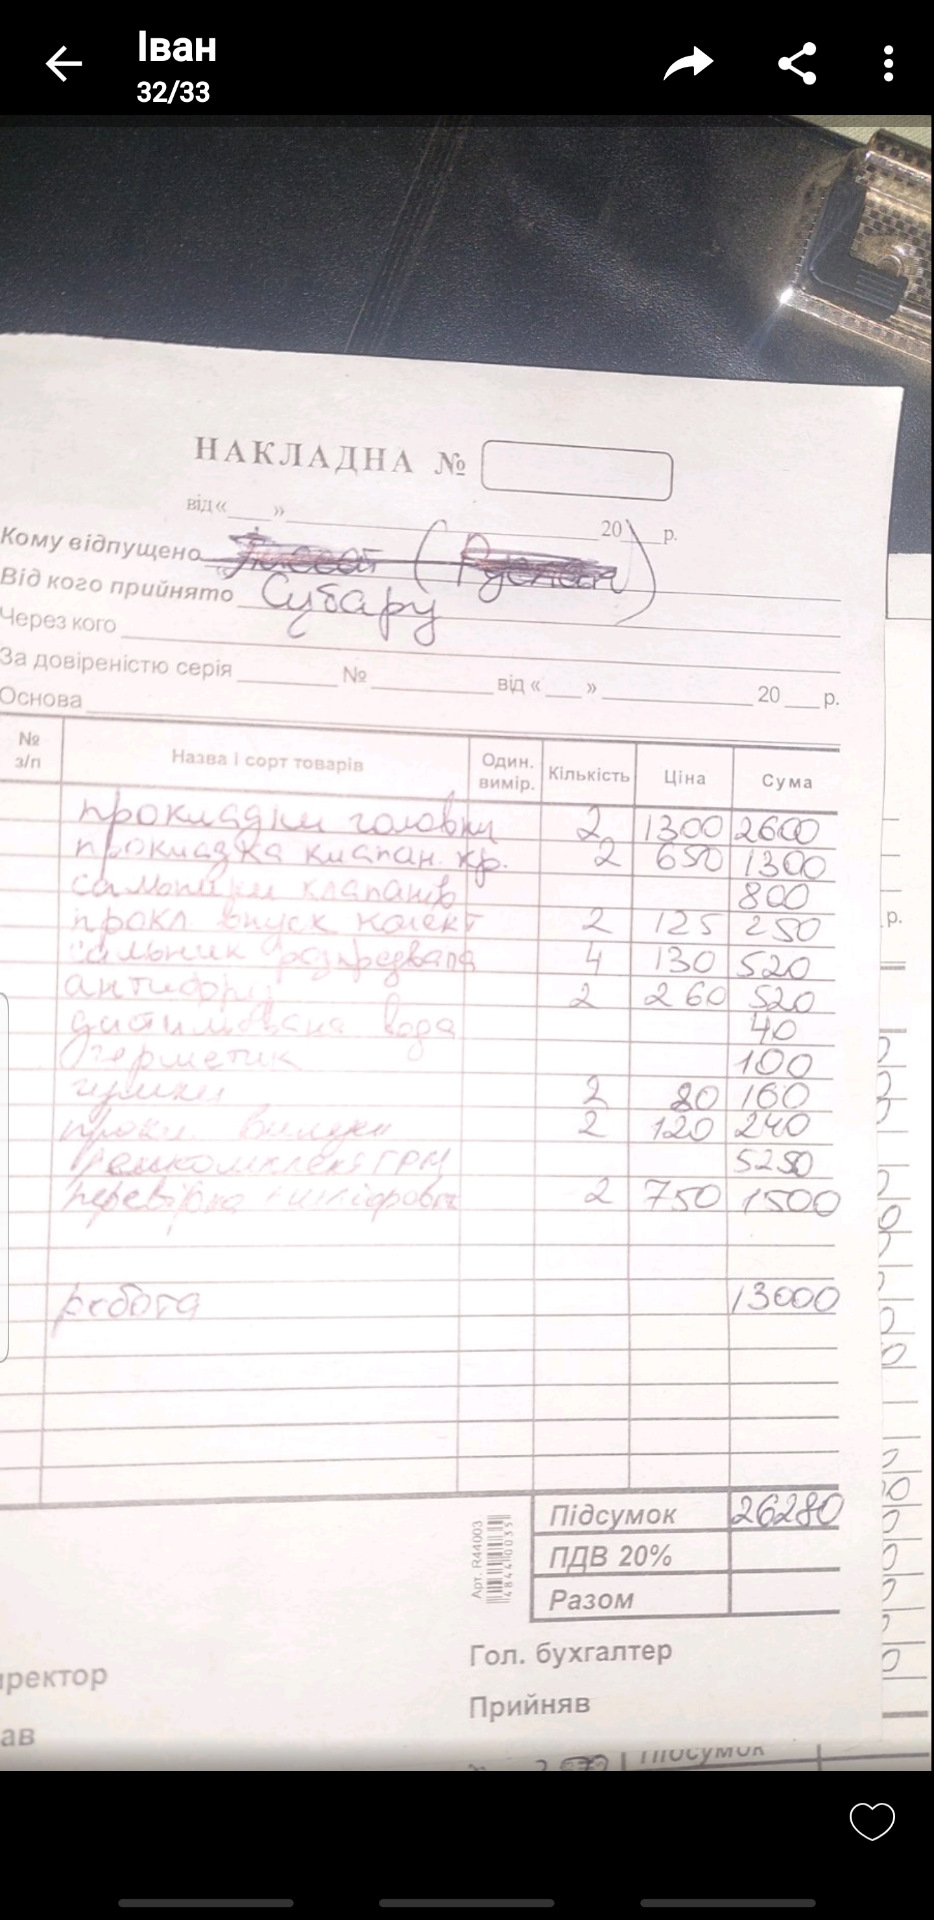 Іван
32/33
НАКЛАДНА №
від « ___ » ______ 20 __ р.
Кому відпущено
Від кого прийнято Субару
Через кого
За довіреністю серія ______ № ______ від « ___ » ______ 20 ___ р.
Основа
№ з/п Назва і сорт товарів Один. вимір. Кількість Ціна Сума
прокладки головки 2 1300 2600
прокладка клапан. кр. 2 650 1300
сальники клапанів 800
прокл впуск колект 2 125 250
сальник розпредвала 4 130 520
антифриз 2 260 520
дистильована вода 40
герметик 100
2 80 160
прокл. 2 120 240
ремкомплект ГРМ 5250
перевірка шліфовка 2 750 1500
робота 13000
Підсумок 26280
ПДВ 20%
Разом
Арт. R44003
Гол. бухгалтер
иректор
Прийняв
ав
Підсумок